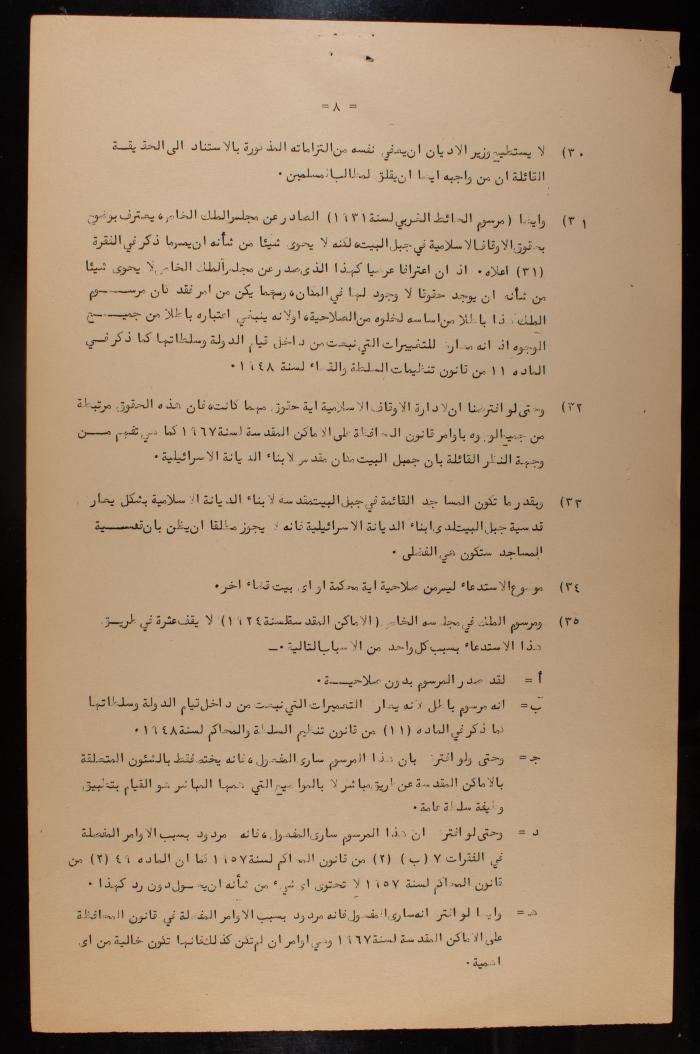 = ٨ =
٣٠) لا يستطيع وزير الاديان ان يعفي نفسه من التزاماته المذكورة بالاستناد الى الحقيقة
القائلة ان من واجبه ايضا ان يقلق لمطالب المسلمين ٠
٣١) وايضا (مرسوم الحائط الغربي لسنة ١٩٣١) الصادر عن مجلس الملك الخاص، يعترف بوضوح
بحقوق الاوقاف الاسلامية في جبل البيت، لكنه لا يحوى شيئا من شأنه ان يمس ما ذكر في الفقرة
(٣١) اعلاه ٠ اذ ان اعترافا عرضيا كهذا الذى صدر عن مجلس الملك الخاص لا يحوى شيئا
من شأنه ان يوجد حقوقا لا وجود لها في المكان، ومهما يكن من امر فقد كان مرسوم
الملك هذا باطلا من اساسه لخلوه من الصلاحية، اولانه ينبغي اعتباره باطلا من جميع
الوجوه اذ انه معارض للتغييرات التي نبعت من داخل قيام الدولة وسلطاتها كما ذكر في
الماده ١١ من قانون تنظيمات السلطة والقضاء لسنة ١٩٤٨ ٠
٣٢) وحتى لو افترضنا ان لادارة الاوقاف الاسلامية اية حقوق مهما كانت، فان هذه الحقوق مرتبطة
من جميع الوجوه باوامر قانون المحافظة على الاماكن المقدسة لسنة ١٩٦٧ كما هي تفهم من
وجهة النظر القائلة بان جبل البيت مكان مقدس لابناء الديانة الاسرائيلية ٠
٣٣) وبقدر ما تكون المساجد القائمة في جبل البيت مقدسة لابناء الديانة الاسلامية بشكل يعارض
قدسية جبل البيت لدى ابناء الديانة الاسرائيلية فانه لا يجوز مطلقا ان يظن بان قدسية
المساجد ستكون هي الفضلى ٠
٣٤) موضوع الاستدعاء ليس من صلاحية اية محكمة او اى بيت قضاء اخر ٠
٣٥) ومرسوم الملك في مجلسه الخاص (الاماكن المقدسة لسنة ١٩٢٤) لا يقف عثرة في طريق
هذا الاستدعاء بسبب كل واحد من الاسباب التالية ٠ــ
أ = لقد صدر المرسوم بدون صلاحيــة ٠
ب= انه مرسوم باطل لانه يعارض التغييرات التي نبعت من داخل قيام الدولة وسلطاتها
كما ذكر في الماده (١١) من قانون تنظيم السلطة والمحاكم لسنة ١٩٤٨ ٠
جـ = وحتى ولو افترض بان هذا المرسوم سارى المفعول، فانه يختص فقط بالشئون المتعلقة
بالاماكن المقدسة عن طريق مباشر لا بالمواضيع التي همها المباشر هو القيام بتطبيق
وظيفة سلطة عامة ٠
د = وحتى لو افترض ان هذا المرسوم سارى المفعول، فانه مردود بسبب الاوامر المفصلة
في الفقرات ٧ (ب) (٢) من قانون المحاكم لسنة ١٩٥٧ كما ان الماده ٤٩ (٢) من
قانون المحاكم لسنة ١٩٥٧ لا تحتوى اى شيء من شأنه ان يحول دون رد كهذا ٠
هـ = وايضا لو افترض انه سارى المفعول فانه مردود بسبب الاوامر المفصلة في قانون المحافظة
على الاماكن المقدسة لسنة ١٩٦٧ وهي اوامر ان لم تكن كذلك فانها تكون خالية من اى
اهمية ٠